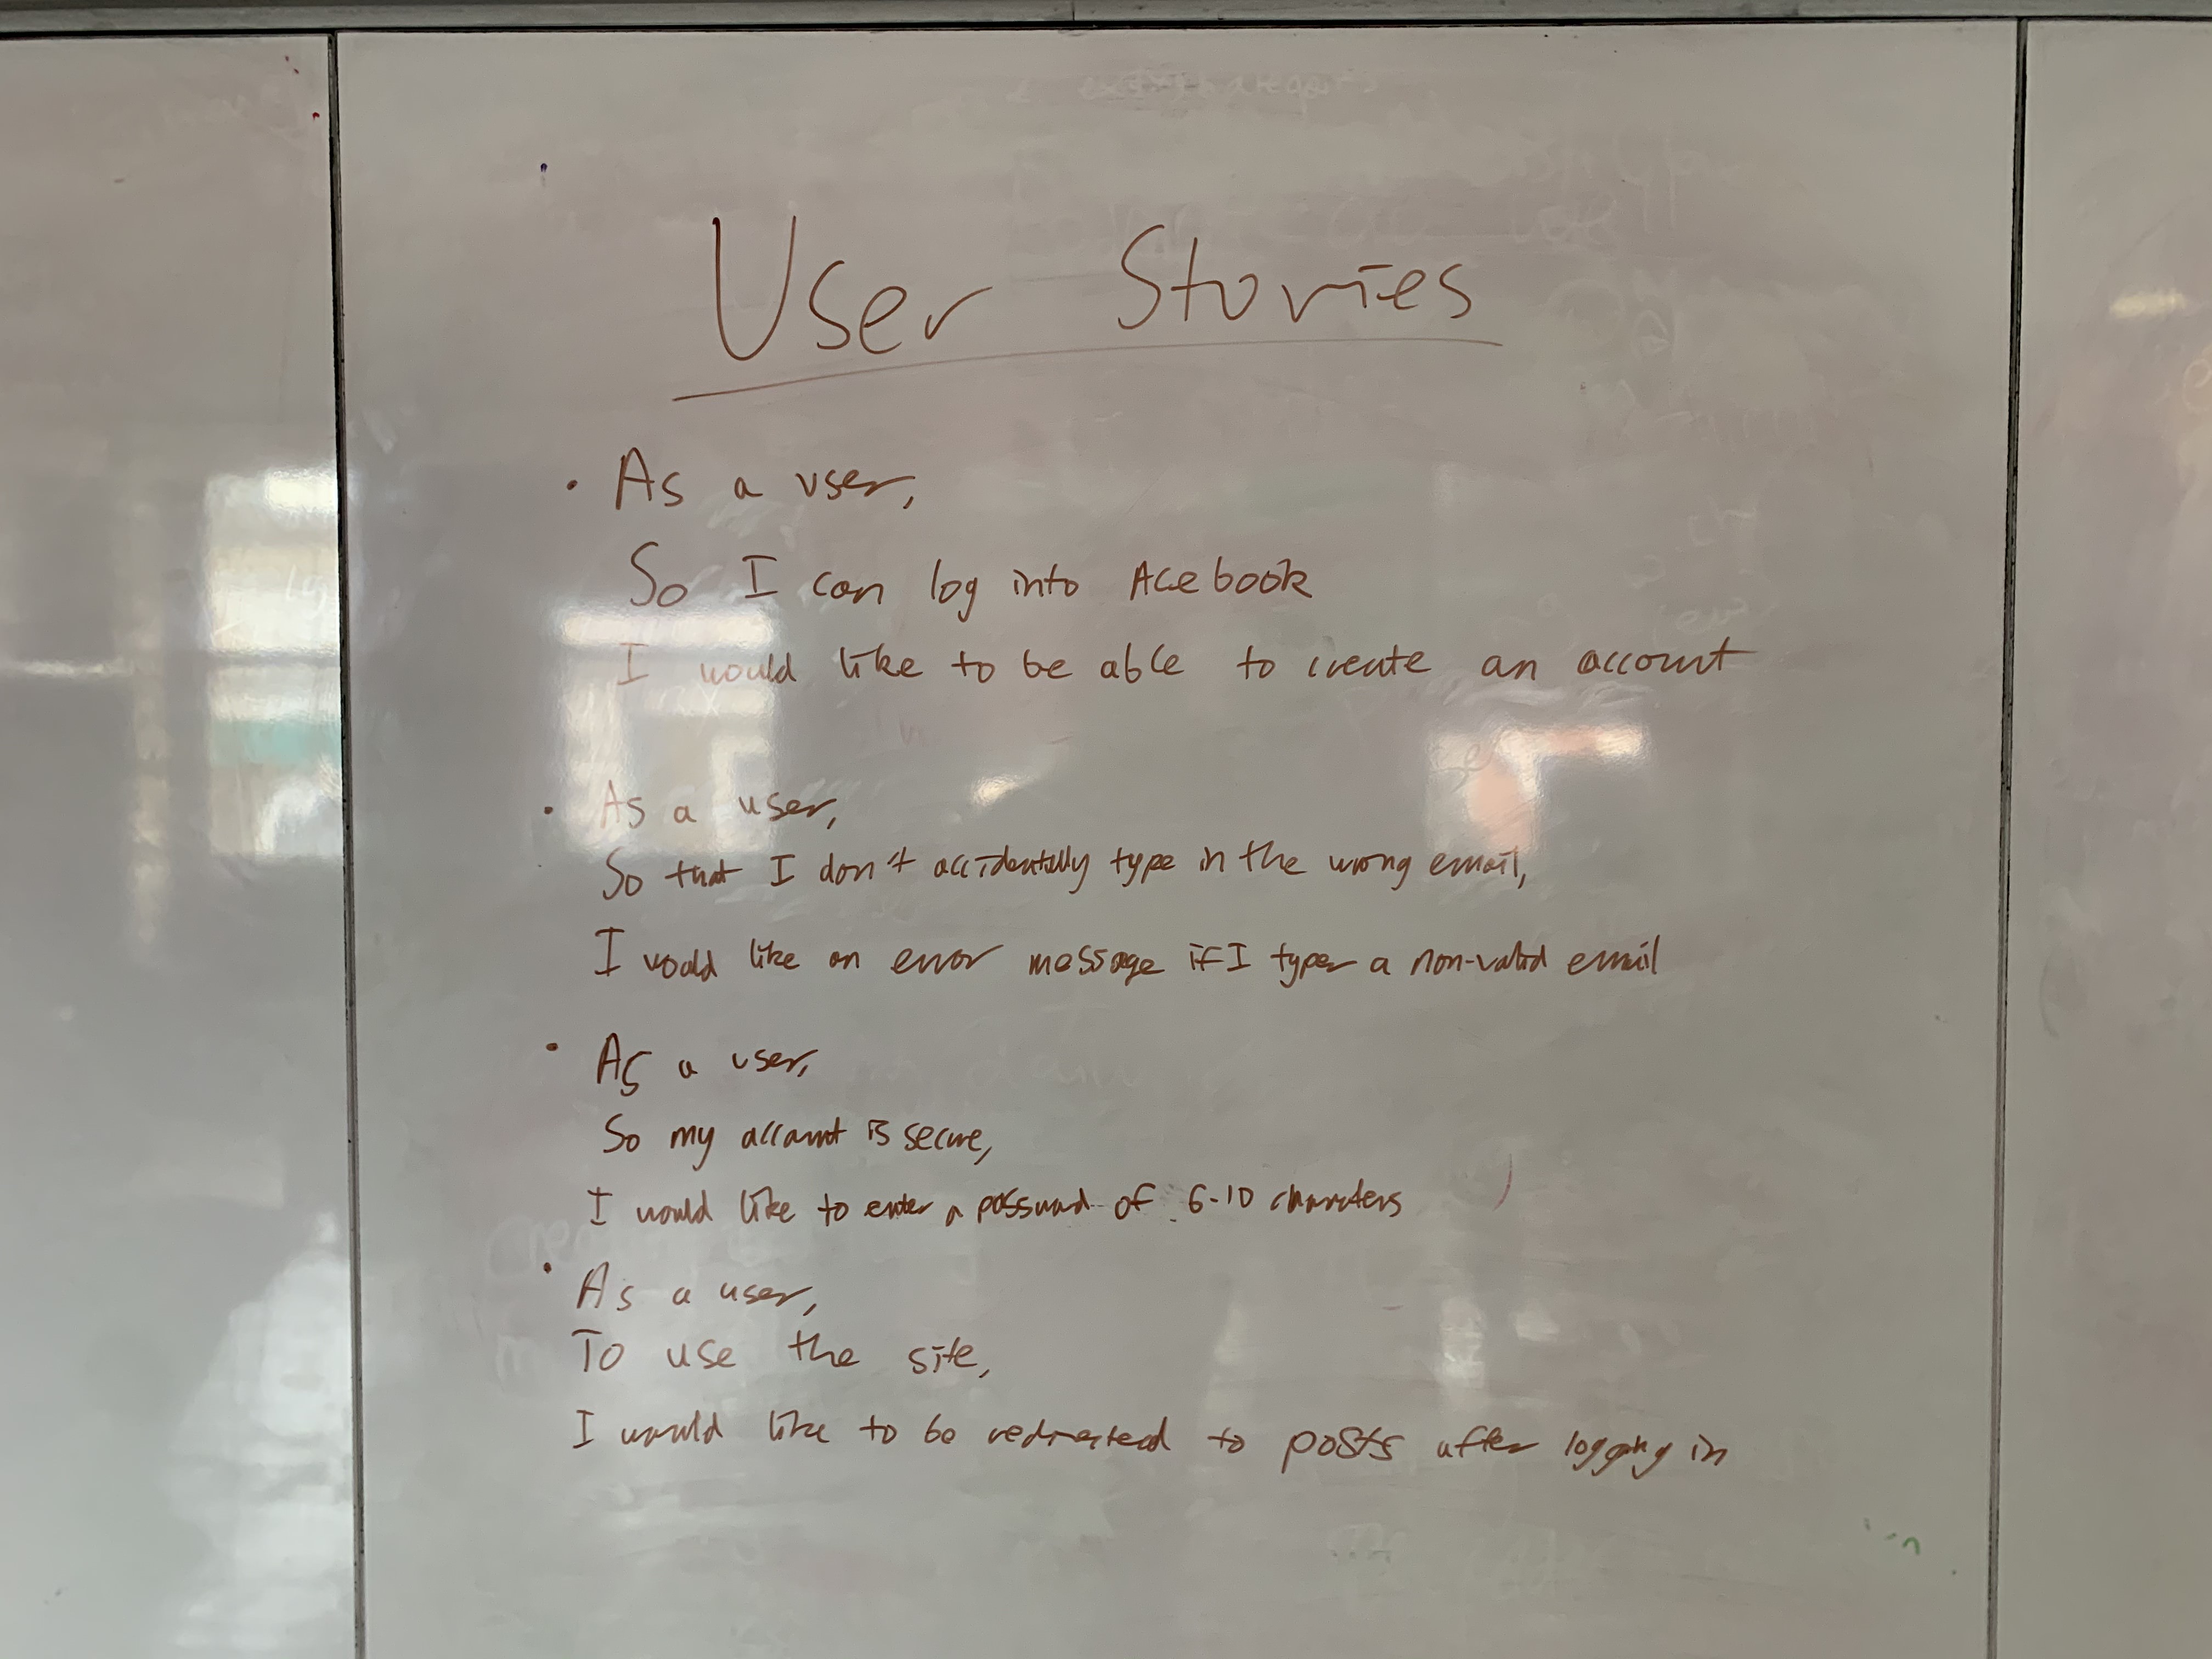 User Stories
· As a user,
So I can log into Acebook
I would like to be able to create an account
· As a user,
So that I don't accidentally type in the wrong email,
I would like an error message if I type a non-valid email
· As a user,
So my account is secure,
I would like to enter a password of 6-10 characters
· As a user,
To use the site,
I would like to be redirected to posts after logging in